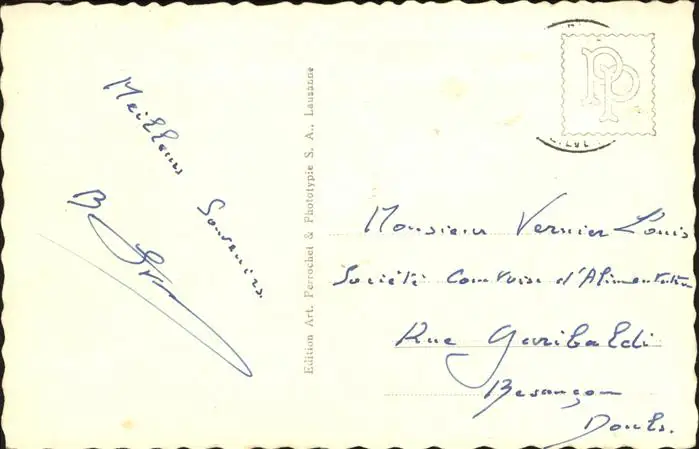 Meilleurs
Souvenirs.
B
Edition Art. Perrochet & Phototypie S. A., Lausanne
PP
Monsieur Vernier Louis
Société Comtoise d'Alimentation
Rue Garibaldi
Besançon
Doubs.